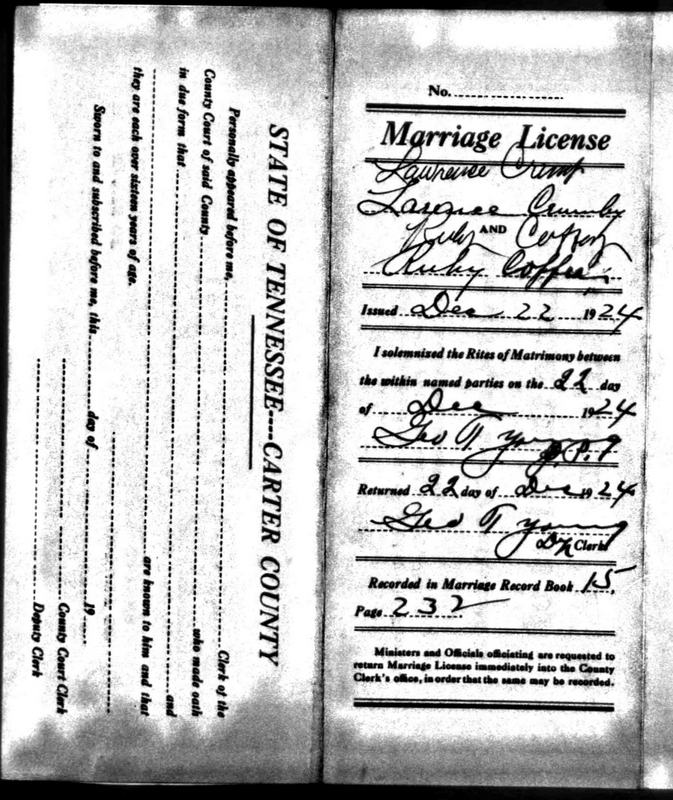 STATE OF TENNESSEE----CARTER COUNTY
Personally appeared before me, Clerk of the
County Court of said County who made oath
in due form that and
are known to him and that
they are each over sixteen years of age.
Sworn to and subscribed before me, this day of 19
County Court Clerk
Deputy Clerk
No.
Marriage License
Lawrence
Larence Crumby
Ruby AND
Ruby
Issued Dec 22 1924
I solemnized the Rites of Matrimony between
the within named parties on the 22 day
of Dec 1924
Geo T Young
Returned 22 day of Dec 1924
Geo T Young
Clerk
Recorded in Marriage Record Book 15,
Page 232
Ministers and Officials officiating are requested to
return Marriage License immediately into the County
Clerk's office, in order that the same may be recorded.